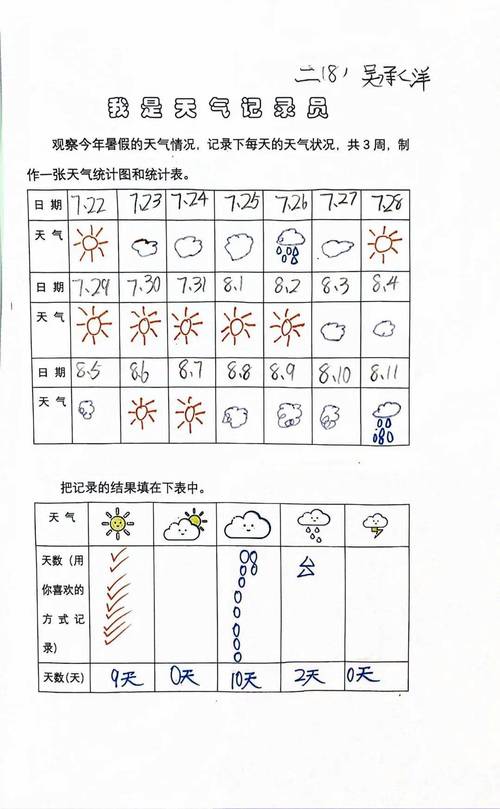 二(8) 吴承洋
我是天气记录员
观察今年暑假的天气情况，记录下每天的天气状况，共3周，制
作一张天气统计图和统计表。
日期 7、22 7、23 7、24 7、25 7、26 7、27 7、28
天气
日期 7、29 7、30 7、31 8、1 8、2 8、3 8、4
天气
日期 8、5 8、6 8、7 8、8 8、9 8、10 8、11
天气
把记录的结果填在下表中。
天气
天数（用
你喜欢的
方式记
录）
天数(天) 9天 0天 10天 2天 0天